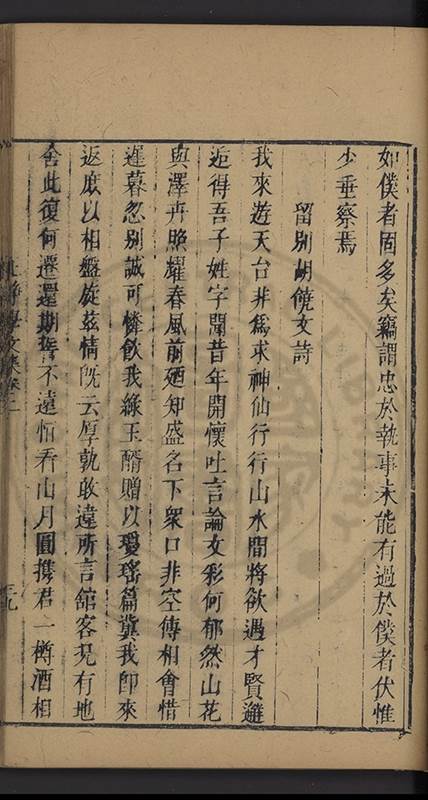 如僕者固多矣竊謂忠於執事未能有過於僕者伏惟
少垂察焉
留別胡饒文詩
我來遊天台非爲求神仙行行山水間將欲遇才賢邂
逅得吾子姓字聞昔年開懷吐言論文彩何郁然山花
與澤卉照耀春風前廼知盛名下衆口非空傳相會惜
遲暮忽別誠可憐飲我綠玉醑贈以瓊瑤篇冀我卽來
返庶以相盤旋茲情旣云厚孰敢違所言舘客死有地
舍此復何遷還期誓不遠恒看山月圓携君一樽酒相
文集卷二